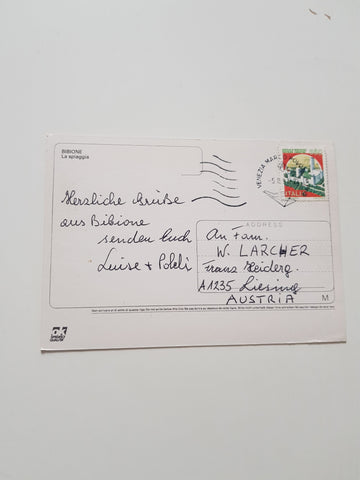 BIBIONE
La spiaggia
VENEZIA MAR
ITALIA
Herzliche Grüße
aus Bibione
senden Euch
Luise + Poldi
ADDRESS
An Fam.
W. LARCHER
Franz Heiderg.
A1235 Liesing
AUSTRIA
M
OK